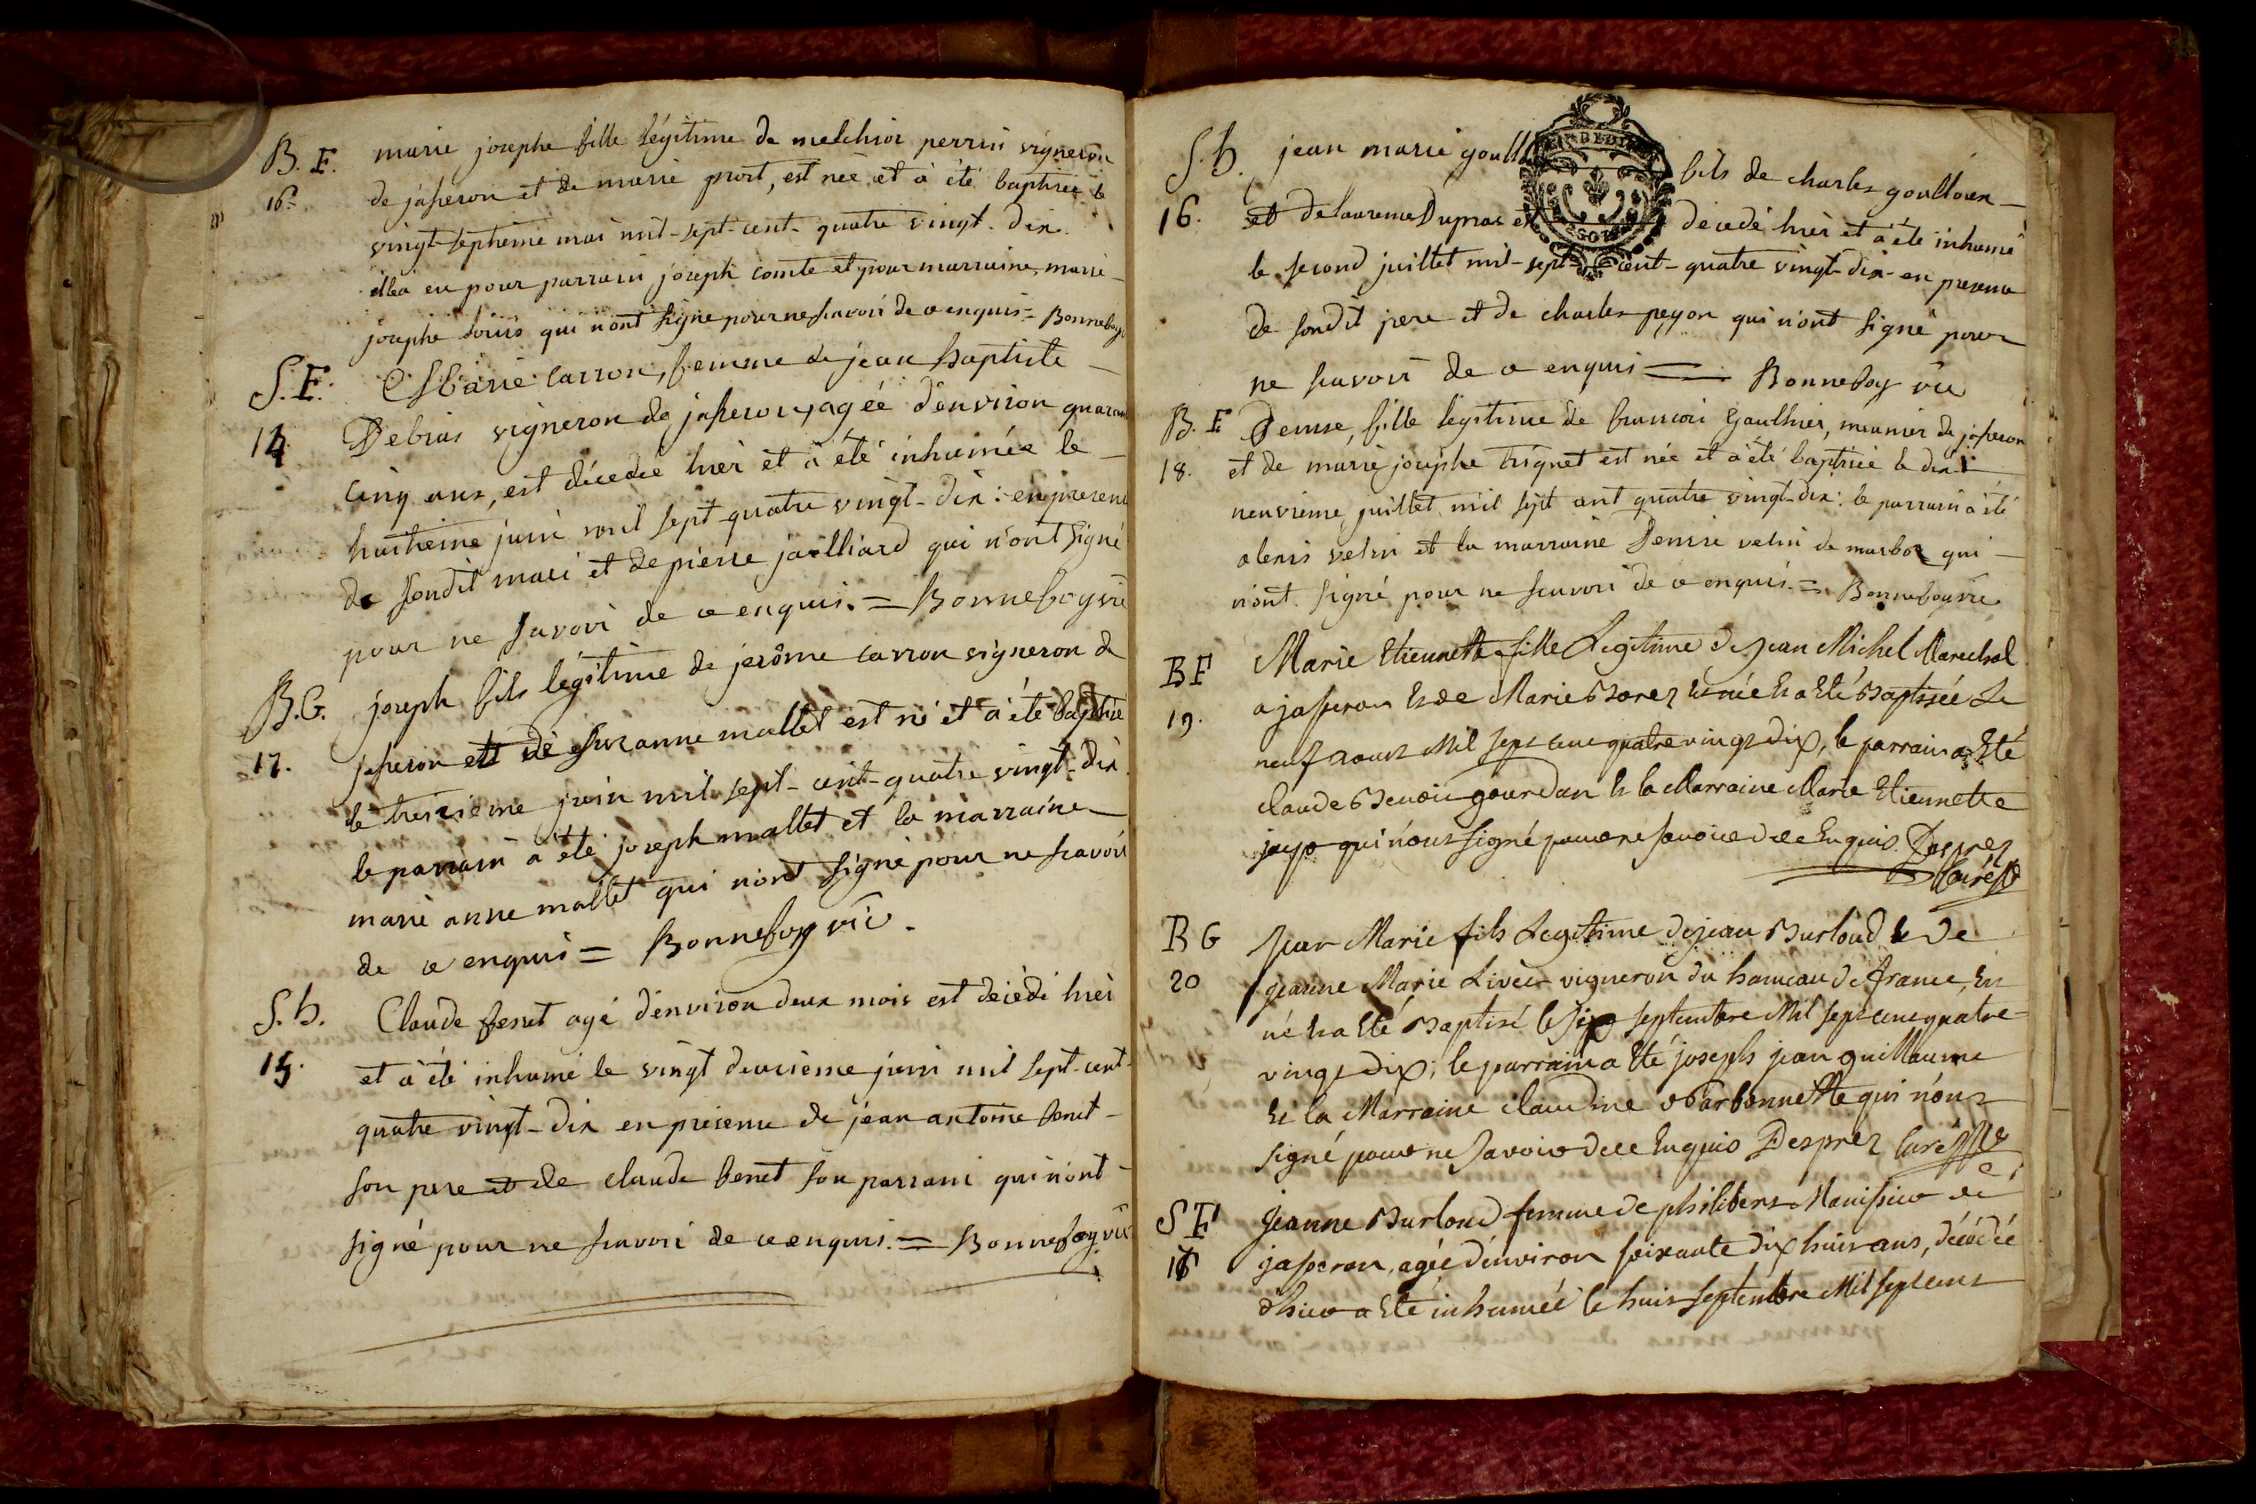 B. F. marie josephe fille légitime de melchior perrin vigneron
16. de jasseron et de marie prost, est née et à été baptisée le
vingt-septieme mai mil-sept-cent-quatre vingt-dix.
elle a eu pour parrain joseph comte et pour marraine marie
josephe qui n'ont signé pour ne scavoir de ce enquis = Bonnefoy
S. F. Marie carron, femme de jean baptiste
14. Debias vigneron de jasseron, agée d'environ quarante
cinq ans, est décedée hier et à été inhumée le
huitieme juin mil sept quatre vingt-dix : en presence
de sondit mari et de pierre jailliard qui n'ont signé
pour ne savoir de ce enquis. = Bonnefoy vic
B. G. joseph fils légitime de jerôme carron vigneron de
17. jasseron et de suzanne mallet est né et à été baptisé
le treizieme juin mil sept-cent-quatre vingt-dix
le parrain à été joseph mallet et la marraine
marie anne mallet qui n'ont signé pour ne scavoir
de ce enquis = Bonnefoy vic.
S. h. Claude benet agé d'environ deux mois est décédé hier
15. et à été inhumé le vingt deuxième juin mil sept-cent-
quatre vingt-dix en présence de jean antoine benet
son pere et de claude benet son parrain qui n'ont
signé pour ne scavoir de ce enquis. = Bonnefoy vic
S. h. jean marie goull fils de charles goulloux
16. et de laurence Dupras est décedé hier et à été inhumé
le second juillet mil-sept-cent-quatre vingt-dix en presence
de sondit pere et de charles peyon qui n'ont signé pour
ne scavoir de ce enquis = Bonnefoy vic
B. F Denise, fille legitime de francois Gaulthier, meunier de jasseron
18. et de marie josephe trignet est née et à été baptisée le dix
neuvieme juillet mil sept cent quatre vingt-dix : le parrain à été
alexis velin et la marraine Denise velin de marboz qui
n'ont signé pour ne scavoir de ce enquis. = Bonnefoy vic
B F Marie Etiennette fille Legitime de jean Michel Marechal
19. a jasseron et de Marie Morez est née et a Eté Baptisée Le
neuf aout Mil sept cent quatre vingt dix, le parrain a Eté
claude Benoit gourdan et la Marraine Marie Etiennette
qui n'ont signé pour ne savoir de ce Enquis. Desprez
curé
B G Jean Marie fils Legitime de jean Burloud et De
20 jeanne Marie Livet vigneron du hameau de france, Est
né et a Eté Baptisé le six septembre Mil sept cent quatre
vingt dix; le parrain a Eté joseph jean guillaume
Et la Marraine claudine Barbonnette qui n'ont
signé pour ne savoir de ce Enquis Desprez curé
S F Jeanne Burloud femme de philibert Manissier de
18 jasseron, agée d'environ soixante dix huit ans, décédée
d'hier a Eté inhumée le huit septembre Mil sept cent